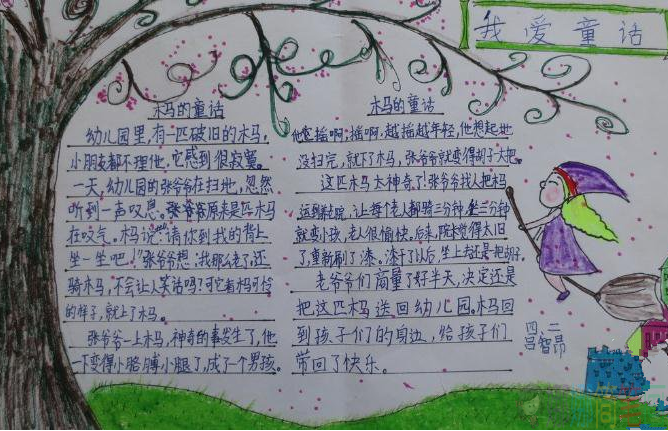 我爱童话
木马的童话
幼儿园里,有一匹破旧的木马,
小朋友都不理他,它感到很寂寞。
一天,幼儿园的张爷爷在扫地,忽然
听到一声叹息。张爷爷原来是匹木马
在叹气。木马说:“请你到我的背上
坐一坐吧!”张爷爷想:我那么老了,还
骑木马,不会让人笑话吗?可它看木马可怜
的样子,就上了木马。
张爷爷一上木马,神奇的事发生了,他
一下变得小胳膊小腿了,成了一个男孩。
木马的童话
他摇啊,摇啊,越摇越年轻,他想起地
没扫完,就下了木马,张爷爷就变得胡子大把。
这匹木马太神奇了!张爷爷找人把木马
运到养老院,让每个老人都骑三分钟,坐三分钟
就变小孩,老人很愉快。后来,院长觉得太旧
了,重新刷了漆。漆干了以后,坐上去还是把胡子。
老爷爷们商量了好半天,决定还是
把这匹木马送回幼儿园。木马回
到孩子们的身边,给孩子们
带回了快乐。
四.二
吕智昂